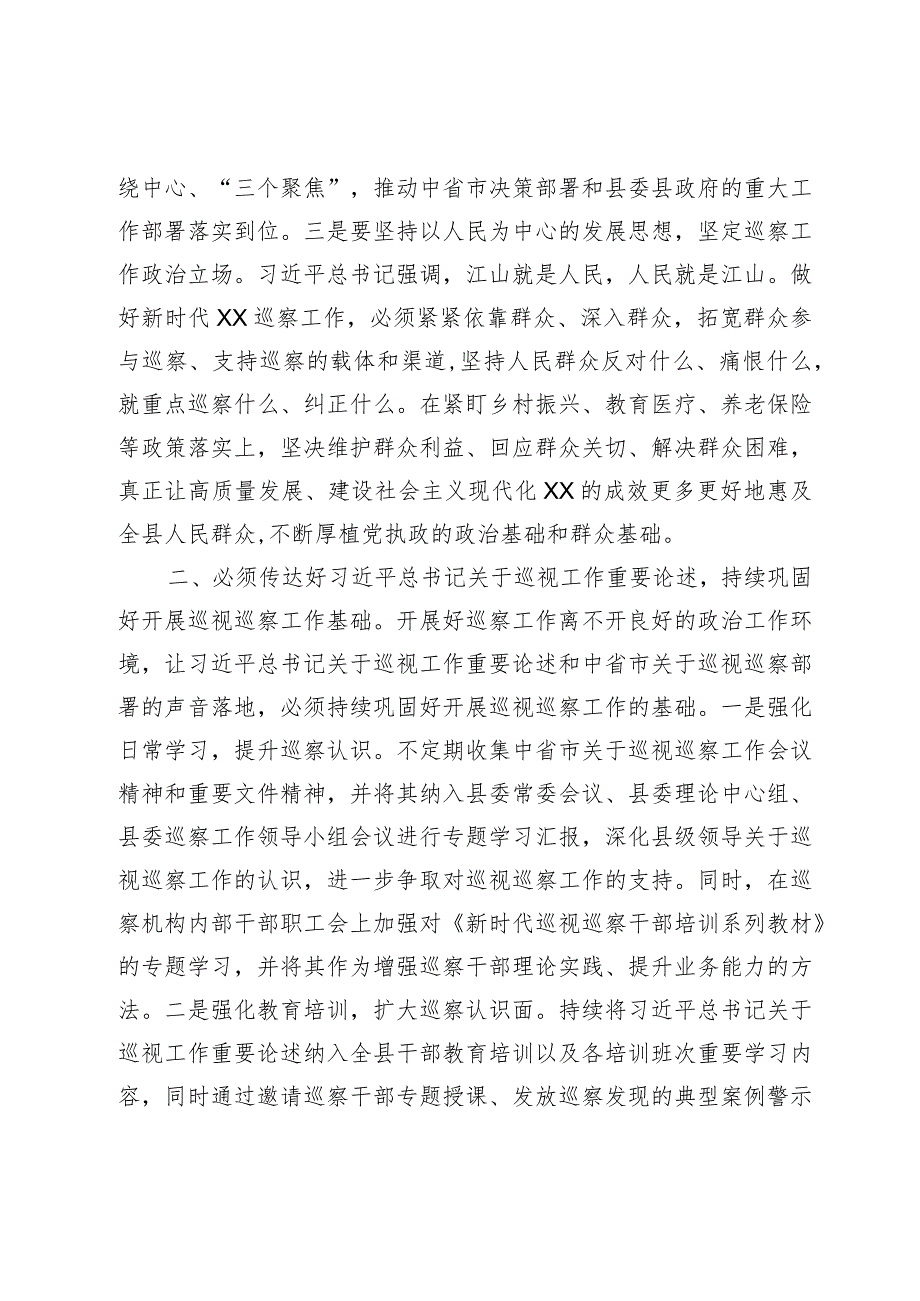 绕中心、“三个聚焦”，推动中省市决策部署和县委县政府的重大工
作部署落实到位。三是要坚持以人民为中心的发展思想，坚定巡察工
作政治立场。习近平总书记强调，江山就是人民，人民就是江山。做
好新时代XX巡察工作，必须紧紧依靠群众、深入群众，拓宽群众参
与巡察、支持巡察的载体和渠道,坚持人民群众反对什么、痛恨什么，
就重点巡察什么、纠正什么。在紧盯乡村振兴、教育医疗、养老保险
等政策落实上，坚决维护群众利益、回应群众关切、解决群众困难，
真正让高质量发展、建设社会主义现代化XX的成效更多更好地惠及
全县人民群众,不断厚植党执政的政治基础和群众基础。
二、必须传达好习近平总书记关于巡视工作重要论述，持续巩固
好开展巡视巡察工作基础。开展好巡察工作离不开良好的政治工作环
境，让习近平总书记关于巡视工作重要论述和中省市关于巡视巡察部
署的声音落地，必须持续巩固好开展巡视巡察工作的基础。一是强化
日常学习，提升巡察认识。不定期收集中省市关于巡视巡察工作会议
精神和重要文件精神，并将其纳入县委常委会议、县委理论中心组、
县委巡察工作领导小组会议进行专题学习汇报，深化县级领导关于巡
视巡察工作的认识，进一步争取对巡视巡察工作的支持。同时，在巡
察机构内部干部职工会上加强对《新时代巡视巡察干部培训系列教材》
的专题学习，并将其作为增强巡察干部理论实践、提升业务能力的方
法。二是强化教育培训，扩大巡察认识面。持续将习近平总书记关于
巡视工作重要论述纳入全县干部教育培训以及各培训班次重要学习内
容，同时通过邀请巡察干部专题授课、发放巡察发现的典型案例警示